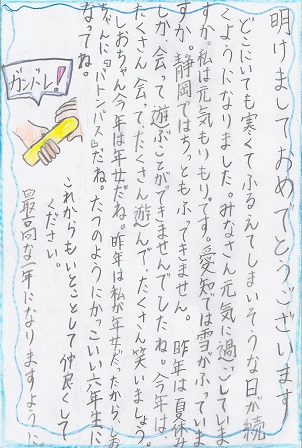 明けまして おめでとうございます
どこにいても寒くてふるえてしまいそうな日が続
くようになりました。みなさん元気に過ごしていま
すか。私は元気もりもりです。愛知では雪がふっていま
すか。静岡ではちっともふってきません。昨年は夏休み
しか、会って遊ぶことができませんでしたね。今年は、
たくさん会って、たくさん遊んで、たくさん笑いましょう。
しおちゃん、今年は年女だね。昨年は私が年女だったからしお
ちゃんに「バトンパス」だね。たつのようにかっこいい六年生に
なってね。
ガンバレ!
これからもいとことして仲良くして
ください。
最高な一年になりますように